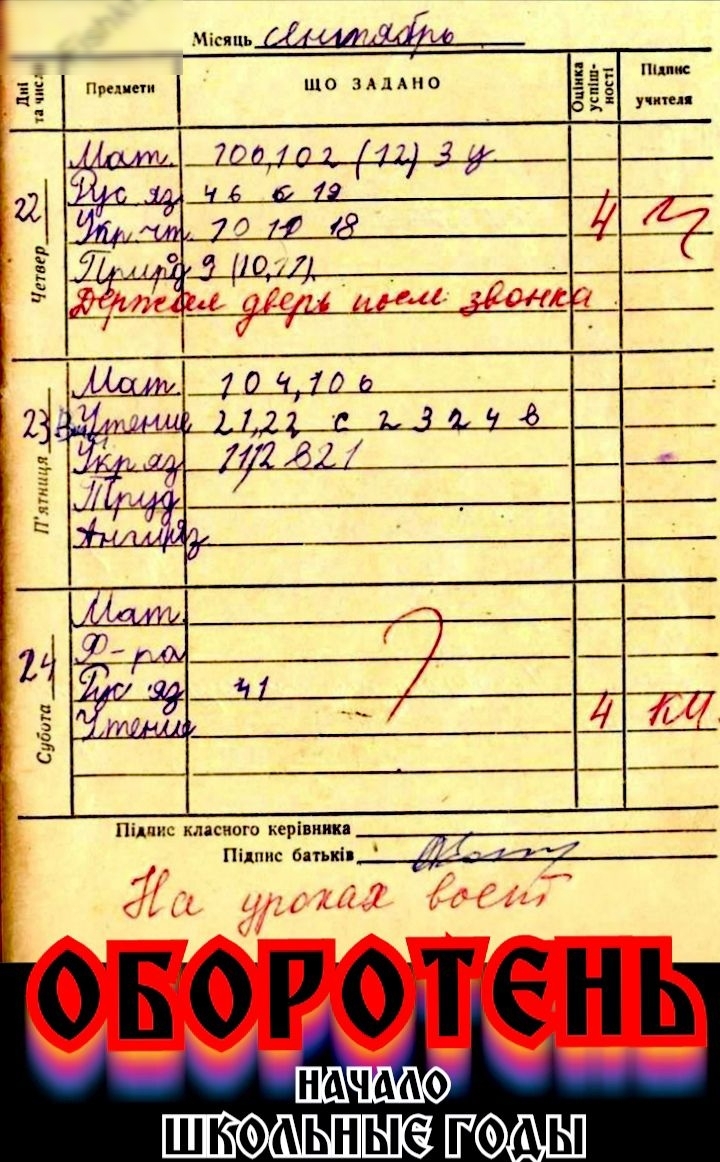 Місяць сентябрь
Дні та числа Предмети ЩО ЗАДАНО Оцінка успіш-ності Підпис учителя
22 Четвер
Мат. 100,102 (12) 3 у.
Рус яз 46 6 19
Укр. чт. 70 18 4
Природ 9 (10,11).
Держал дверь после звонка
23 П'ятниця
Мат. 104,106
Чтение 21,22 с 23 24 в
Укр яз
Труд
Англ яз
24 Субота
Мат.
Ф-ра
Рус яз 41
Чтение 4 КМ
Підпис класного керівника
Підпис батьків
На уроках воет
ОБОРОТЕНЬ
НАЧАЛО
ШКОЛЬНЫЕ ГОДЫ